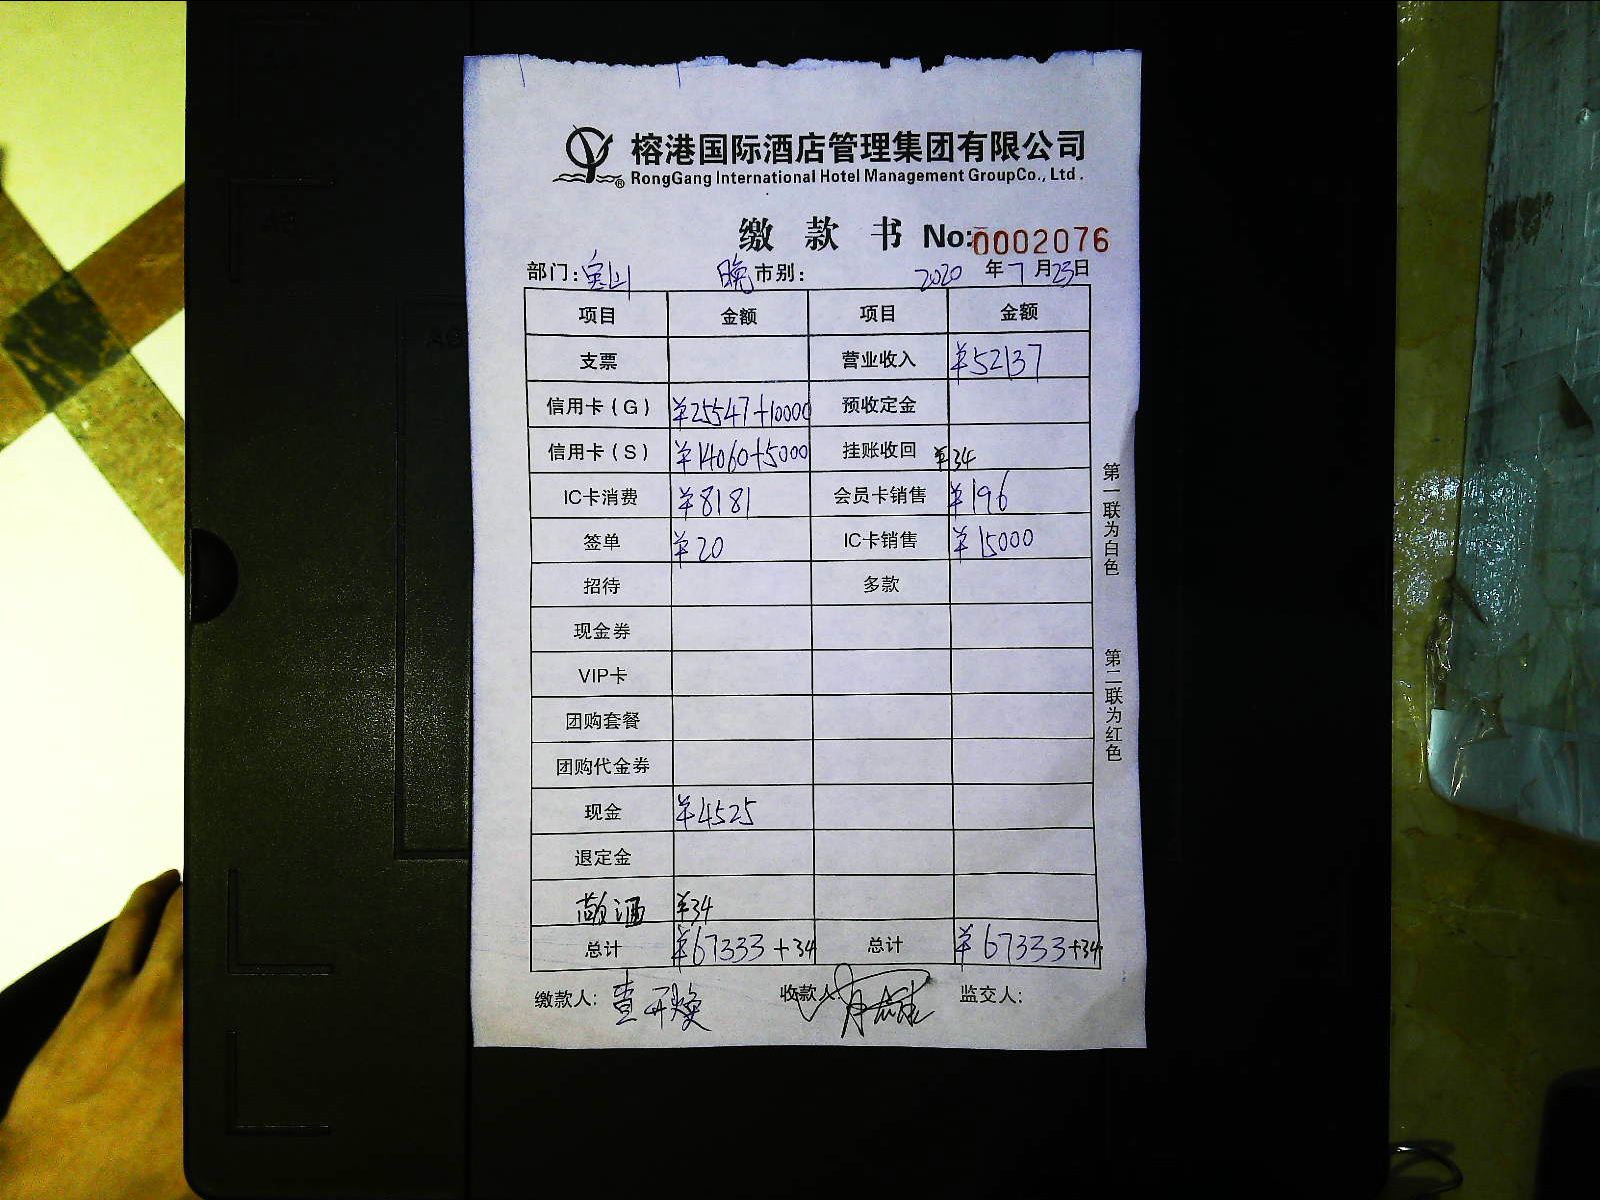 榕港国际酒店管理集团有限公司
RongGang International Hotel Management GroupCo., Ltd.
缴 款 书 No:0002076
部门: 宝山 晚市别: 2020年7月23日
项目 金额 项目 金额
支票 营业收入 ¥52137
信用卡(G) ¥25547+10000 预收定金
信用卡(S) ¥14060+5000 挂账收回 ¥34
IC卡消费 ¥8181 会员卡销售 ¥196
签单 ¥20 IC卡销售 ¥15000
招待 多款
现金券
VIP卡
团购套餐
团购代金券
现金 ¥4525
退定金
酒 ¥34
总计 ¥67333+34 总计 ¥67333+34
缴款人: 查开焕 收款人: 监交人:
第一联为白色
第二联为红色